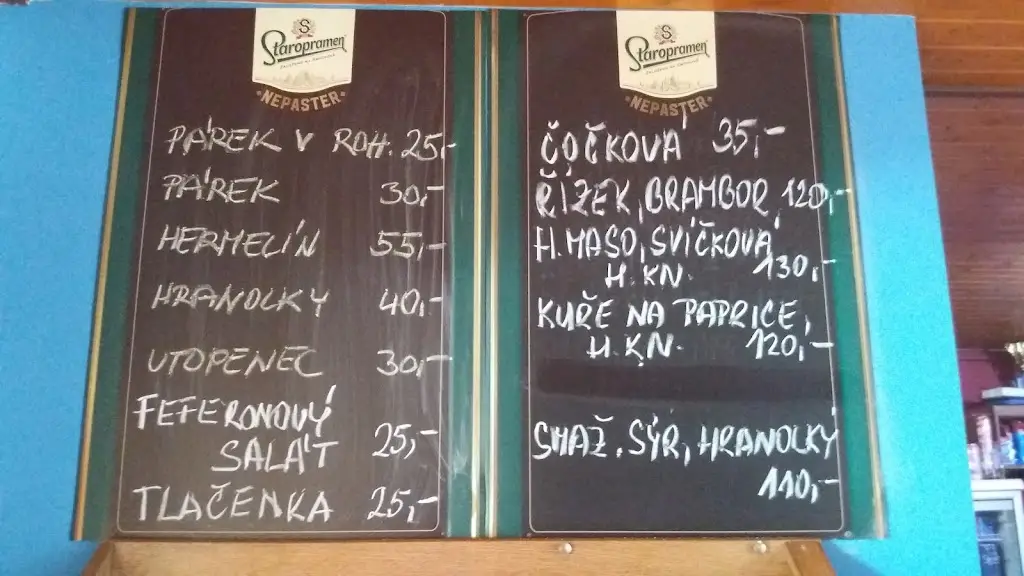 Staropramen
NEPASTER
PÁREK V ROH. 25,-
PÁREK 30,-
HERMELÍN 55,-
HRANOLKY 40,-
UTOPENEC 30,-
FEFERONOVÝ
SALÁT 25,-
TLAČENKA 25,-
Staropramen
NEPASTER
ČOČKOVÁ 35,-
ŘÍZEK, BRAMBOR, 120,-
H. MASO, SVÍČKOVÁ
H. KN. 130,-
KUŘE NA PAPRICE,
H. KN. 120,-
SMAŽ. SÝR, HRANOLKY
110,-